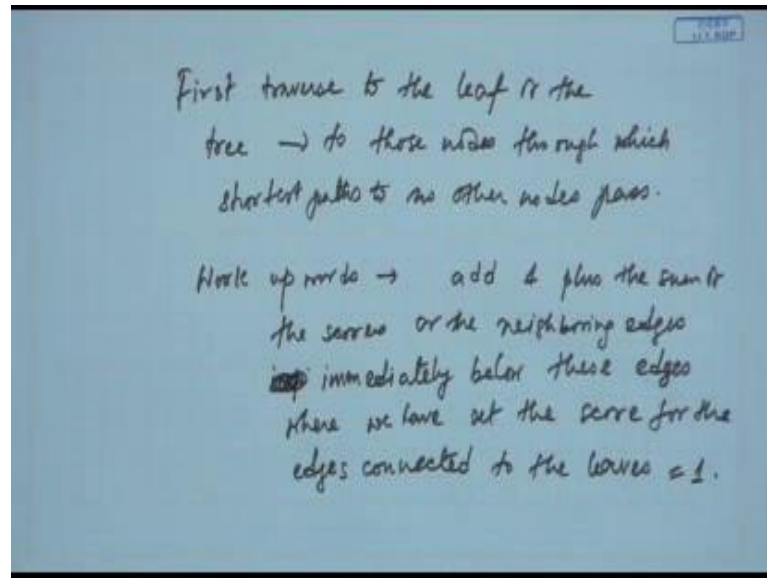 First traverse to the leaf of the
tree → to those nodes through which
shortest paths to no other nodes pass.
Work upwards → add 1 plus the sum of
the scores of the neighboring edges
immediately below these edges
where we have set the score for the
edges connected to the leaves = 1.